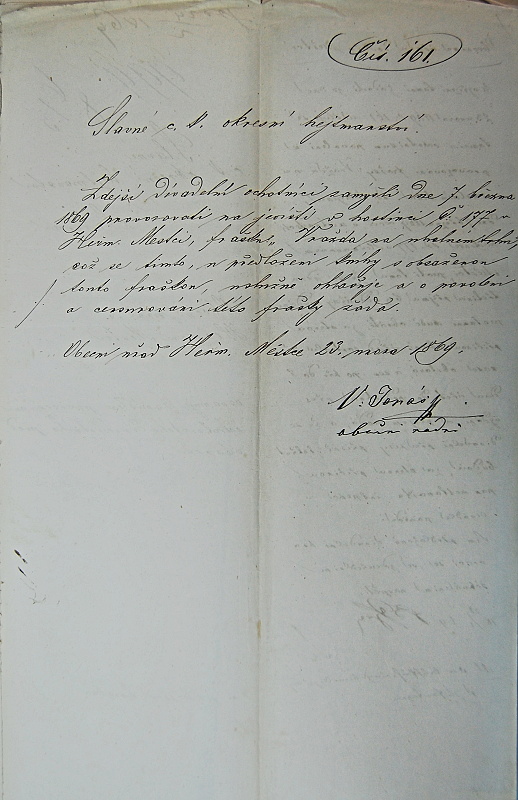 Čís. 161.
Slavné c. k. okresní hejtmanství.
Zdejší divadelní ochotníci zamýšlí dne 7. března
1869 provozovati na jevišti v hostinci č. 177 v
Heřm. Městci, frašku „Vražda na uhelném trhu,
což se tímto, u předložení knihy s obsaženou
touto fraškou, uctivě ohlašuje a o povolení
a censurování této frašky žádá.
Obecní úřad Heřm. Městec 23. února 1869.
V. Jonáš
obecní radní